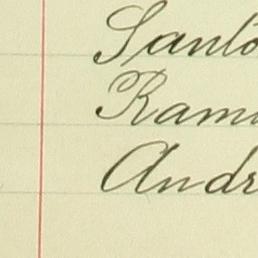 Santo
Ramo
Andr